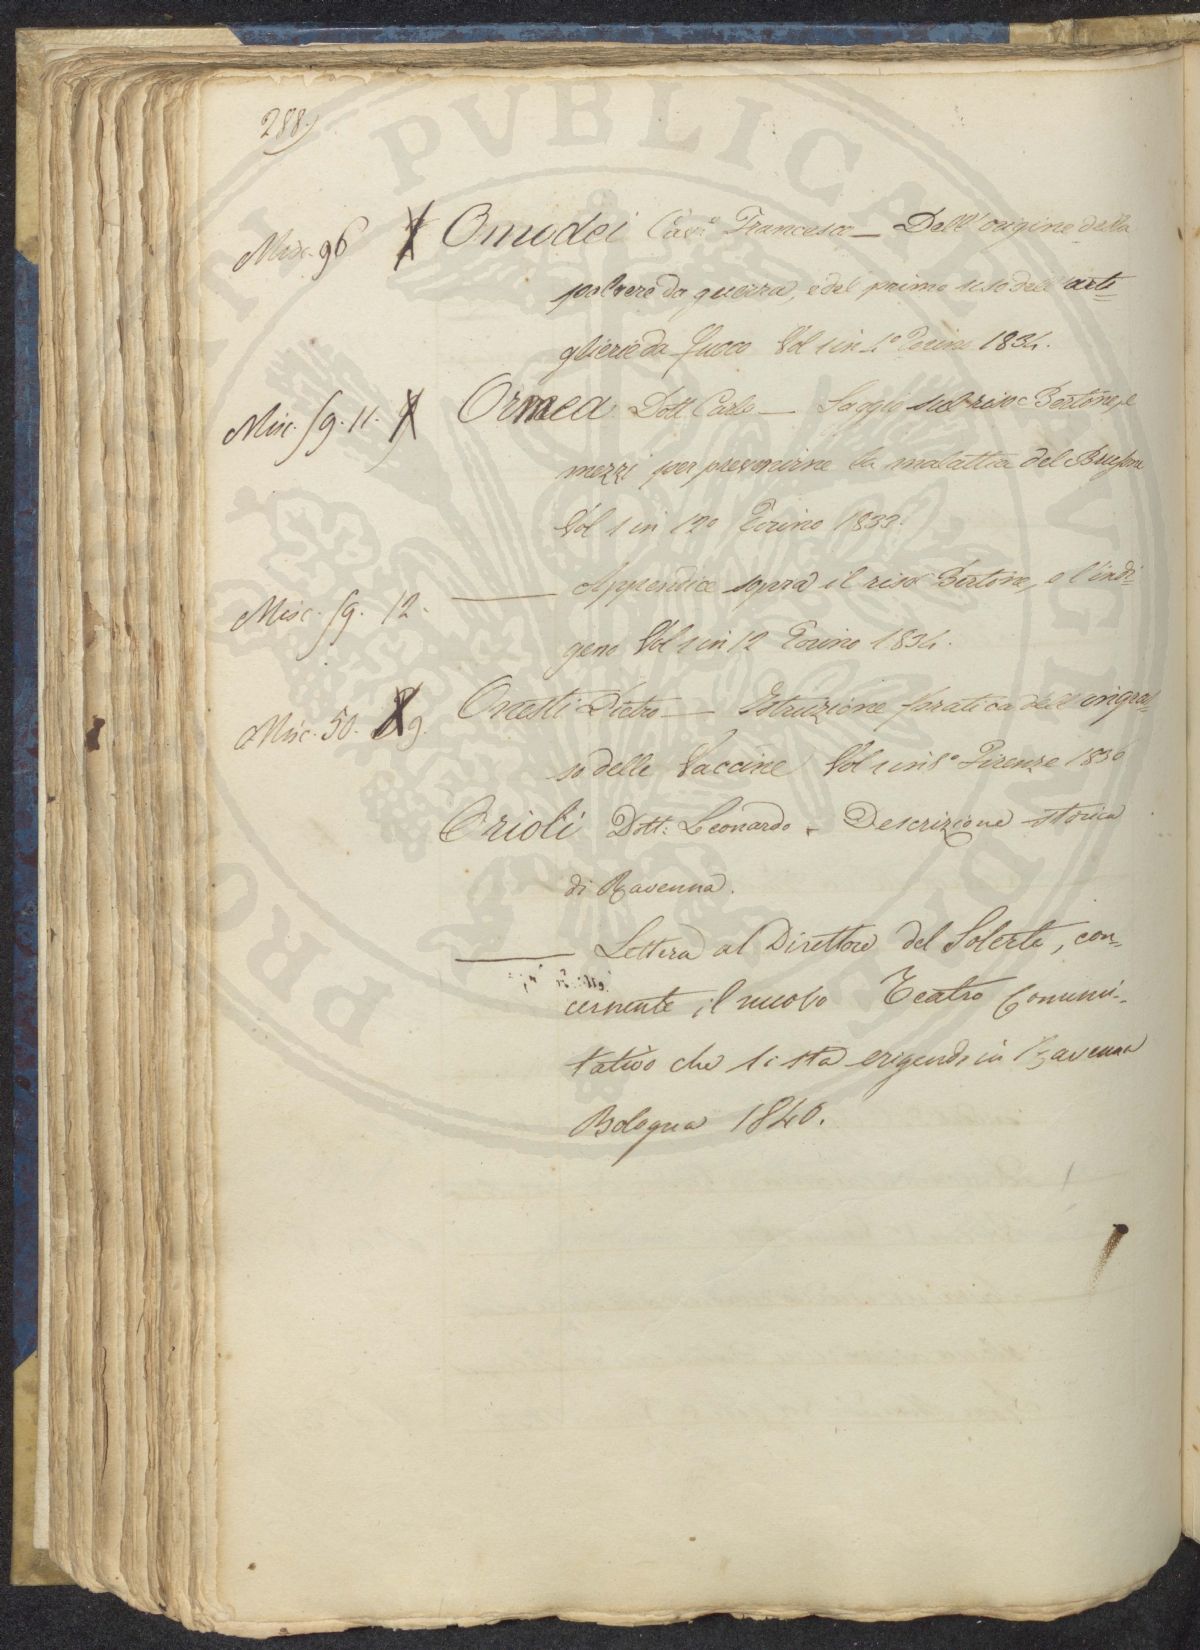 288.)
Misc. 96 Omodei Cav.e Francesco — Dell'origine della
polvere da guerra, e del primo uso dell'arti=
glierie da fuoco Vol 1 in 4º Torino 1834.
Misc. 59. 11. Ormea Dott Carlo — Saggio sul riso Bertone, e
mezzi per prevenirne la malattia del Brusone
Vol 1 in 12º Torino 1833.
Misc. 59. 12. —— Appendice sopra il riso Bertone, e l'indi=
geno Vol 1 in 12 Torino 1834.
Misc. 50. 9. Onesti Pietro — Istruzione pratica dell'ingras=
so delle Vaccine Vol 1 in 8º Firenze 1830
Orioli Dott: Leonardo - Descrizione storica
di Ravenna.
—— Lettera al Direttore del Solerte, con=
cernente il nuovo Teatro Comuni=
tativo che si sta erigendo in Ravenna
Bologna 1840.
PROTI PVBLICAE